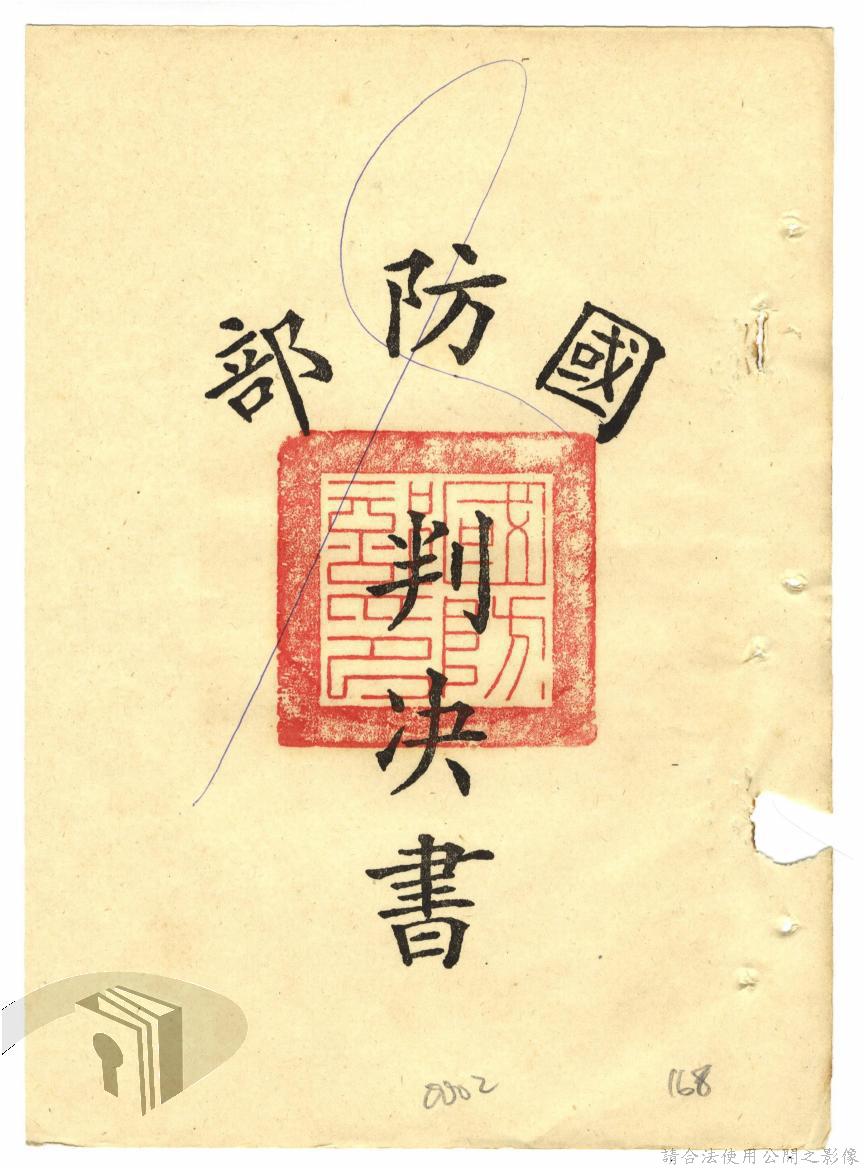 國防部
判決書
國防部印
0002
168
請合法使用公開之影像